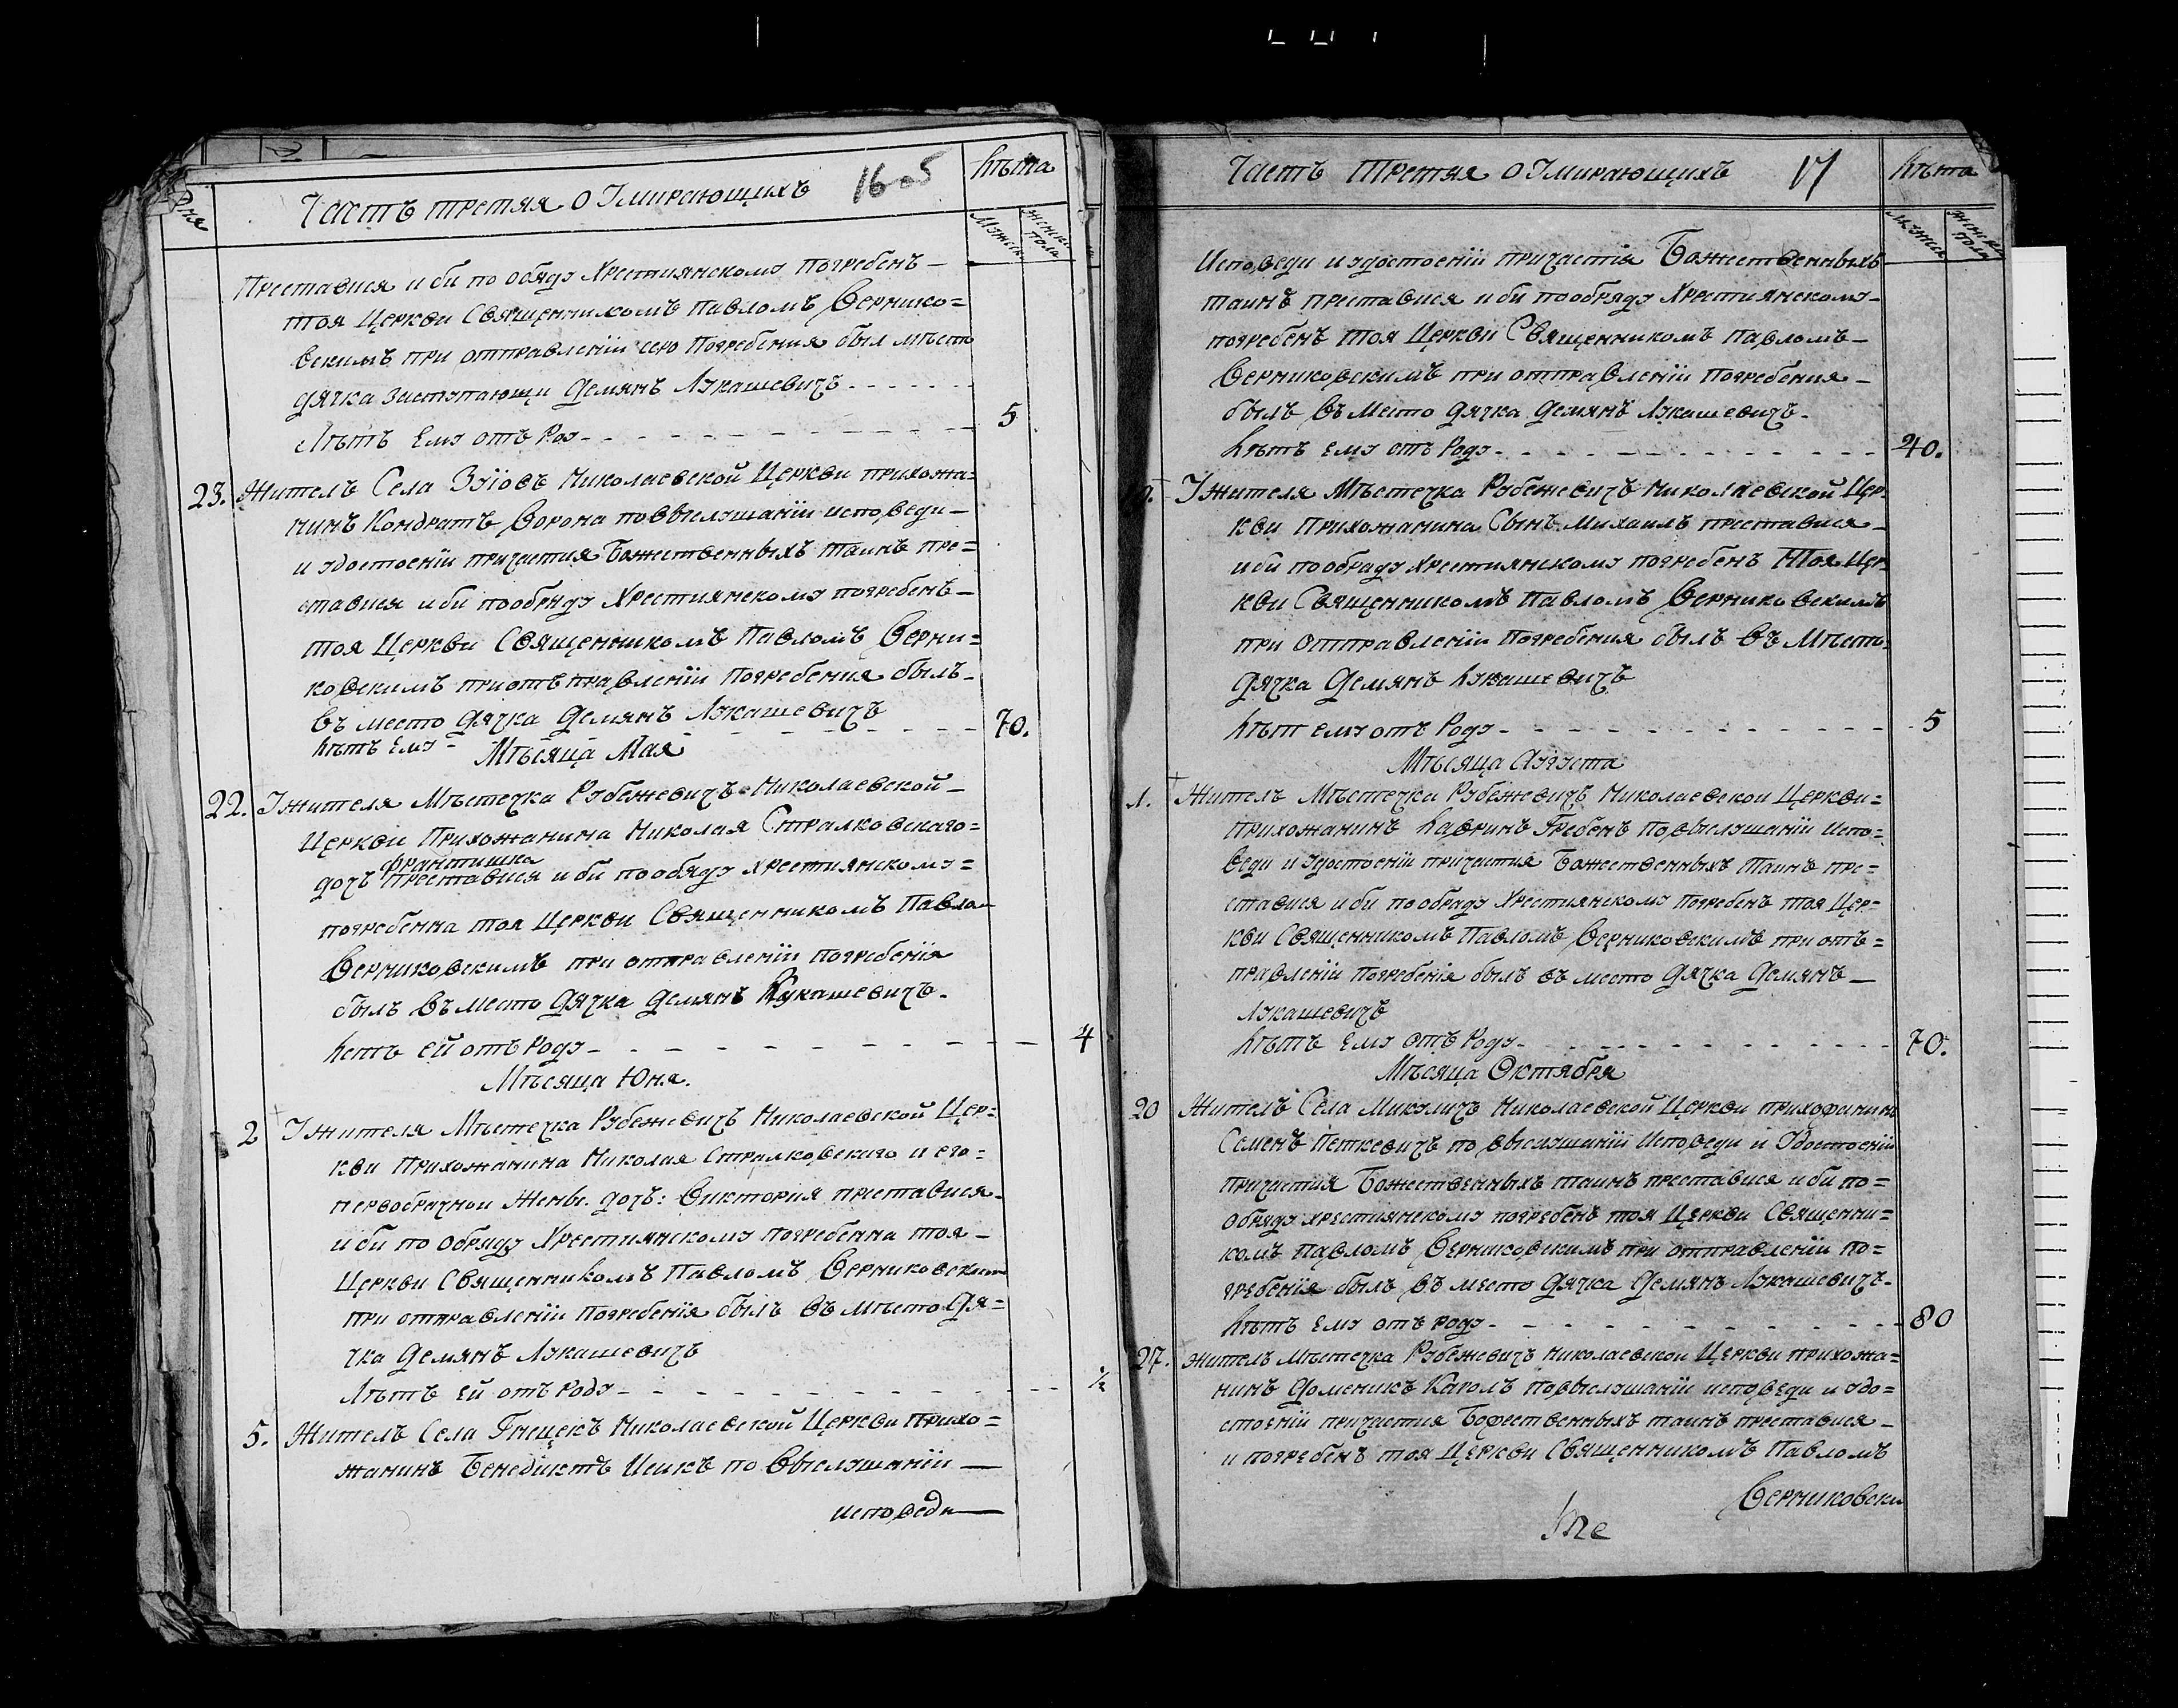 Дня
Часть третяя о Умирающихъ 16
лѣта
Мужеск
женска пола
Преставися и би по обяду Хрестиянскому погребенъ —
тоя Церкви Священникомъ Павломъ Вернико=
вскимъ при отправленіи сего Погребения был мѣсто
дячка заступающи Демянъ Лукашевичъ
Лѣтъ Ему отъ Роз 5
23. Житель Села Николаевской Церкви прихожа=
нинъ Кондратъ Ворона по выслушаніи исповеди —
и удостоеніи причастия Божественныхъ таинъ пре=
ставися и би по обряду Хрестиянскому погребенъ —
тоя Церкви Священникомъ Павломъ Верни=
ковскимъ при отъправленіи Погребения былъ —
въ место Дячка Демянъ Лукашевичъ
лѣтъ Ему 70.
Мѣсяца Мая
22. У жителя Мѣстечка Рубежевичъ Николаевской —
Церкви Прихожанина Николая Стралковскаго =
франтишка
дочъ преставися и би по обяду хрестиянскому =
погребенна тоя Церкви Священникомъ Павлом
Верниковскимъ при отправленіи погребенія
былъ въ место Дячка Демянъ Лукашевичъ.
летъ ей отъ Роду 4
Мѣсяца Юня.
2 У жителя Мѣстечка Рубежевичъ Николаевской Цер=
кви Прихожанина Николая Стралковскиго и его =
первобрачнои Жены. дочъ: Виктория преставися —
и би по обряду Хрестиянскому погребенна тоя —
Церкви Священникомъ Павломъ Верниковским
при отправленіи погребенія былъ въ мѣсто Дя=
чка Демянъ Лукашевичъ
Лѣтъ ей отъ Роду ½
5. Житель Села Николаевской Церкви Прихо=
жанинъ Бенедіктъ по выслушаніи —
исповеди —
Часть Третяя о Умирающихъ 17
лѣта
Мужеск
женска пола
Исповеди и удостоеніи причастія Божественныхъ
таинъ преставися и би по обряду Хрестиянскому —
погребенъ тоя Церкви Священникомъ Павломъ —
Верниковскимъ при отправленіи Погребения —
былъ въ Место Дячка Демянъ Лукашевичъ.
Лѣтъ ему отъ Роду 40.
У жителя Мѣстечка Рубежевичъ Николаевской Цер=
кви Прихожанина Сынъ Михаилъ преставися —
и би по обряду Хрестиянскому погребенъ Тоя Цер=
кви Священникомъ Павломъ Верниковскимъ
при отправленіи Погребения былъ въ Мѣсто
Дячка Демянъ Лукашевичъ
лѣт ему отъ Роду 5
Мѣсяца Августа
Житель Мѣстечка Рубежевичъ Николаевскои Церкви =
Прихожанинъ Лавринъ Гребенъ По выслушаніи Испо=
веди и удостоеніи причастия Божественныхъ Таинъ пре=
ставися и би по обряду Хрестиянскому Погребенъ тоя Цер=
кви Священникомъ Павломъ Верниковскимъ при отъ=
правленіи Погребенія былъ въ место Дячка Демянъ —
Лукашевичъ
Лѣтъ Ему отъ Роду 70.
Мѣсяца Октября
20 Житель Села Микуличъ Николаевской Церкви прихожинин
Семенъ Петкевичъ по выслушаніи Исповеди и Удостоеніи
Причастия Божественныхъ таинъ преставися и би по =
обряду хрестиянскому погребенъ тоя Церкви Священни=
комъ Павломъ Верниковскимъ при отправленіи по=
гребенія былъ въ место Дячка Демянъ Лукашевичъ.
Лѣтъ Ему отъ роду 80
27. житель Мѣстечка Рубежевичъ Николаевскои Церкви прихожа=
нинъ Доменикъ Кароль По выслушаніи исповеди и удо=
стоеніи причастия Божественныхъ таинъ преставися —
и погребенъ тоя Церкви Священникомъ Павломъ
Верниковски